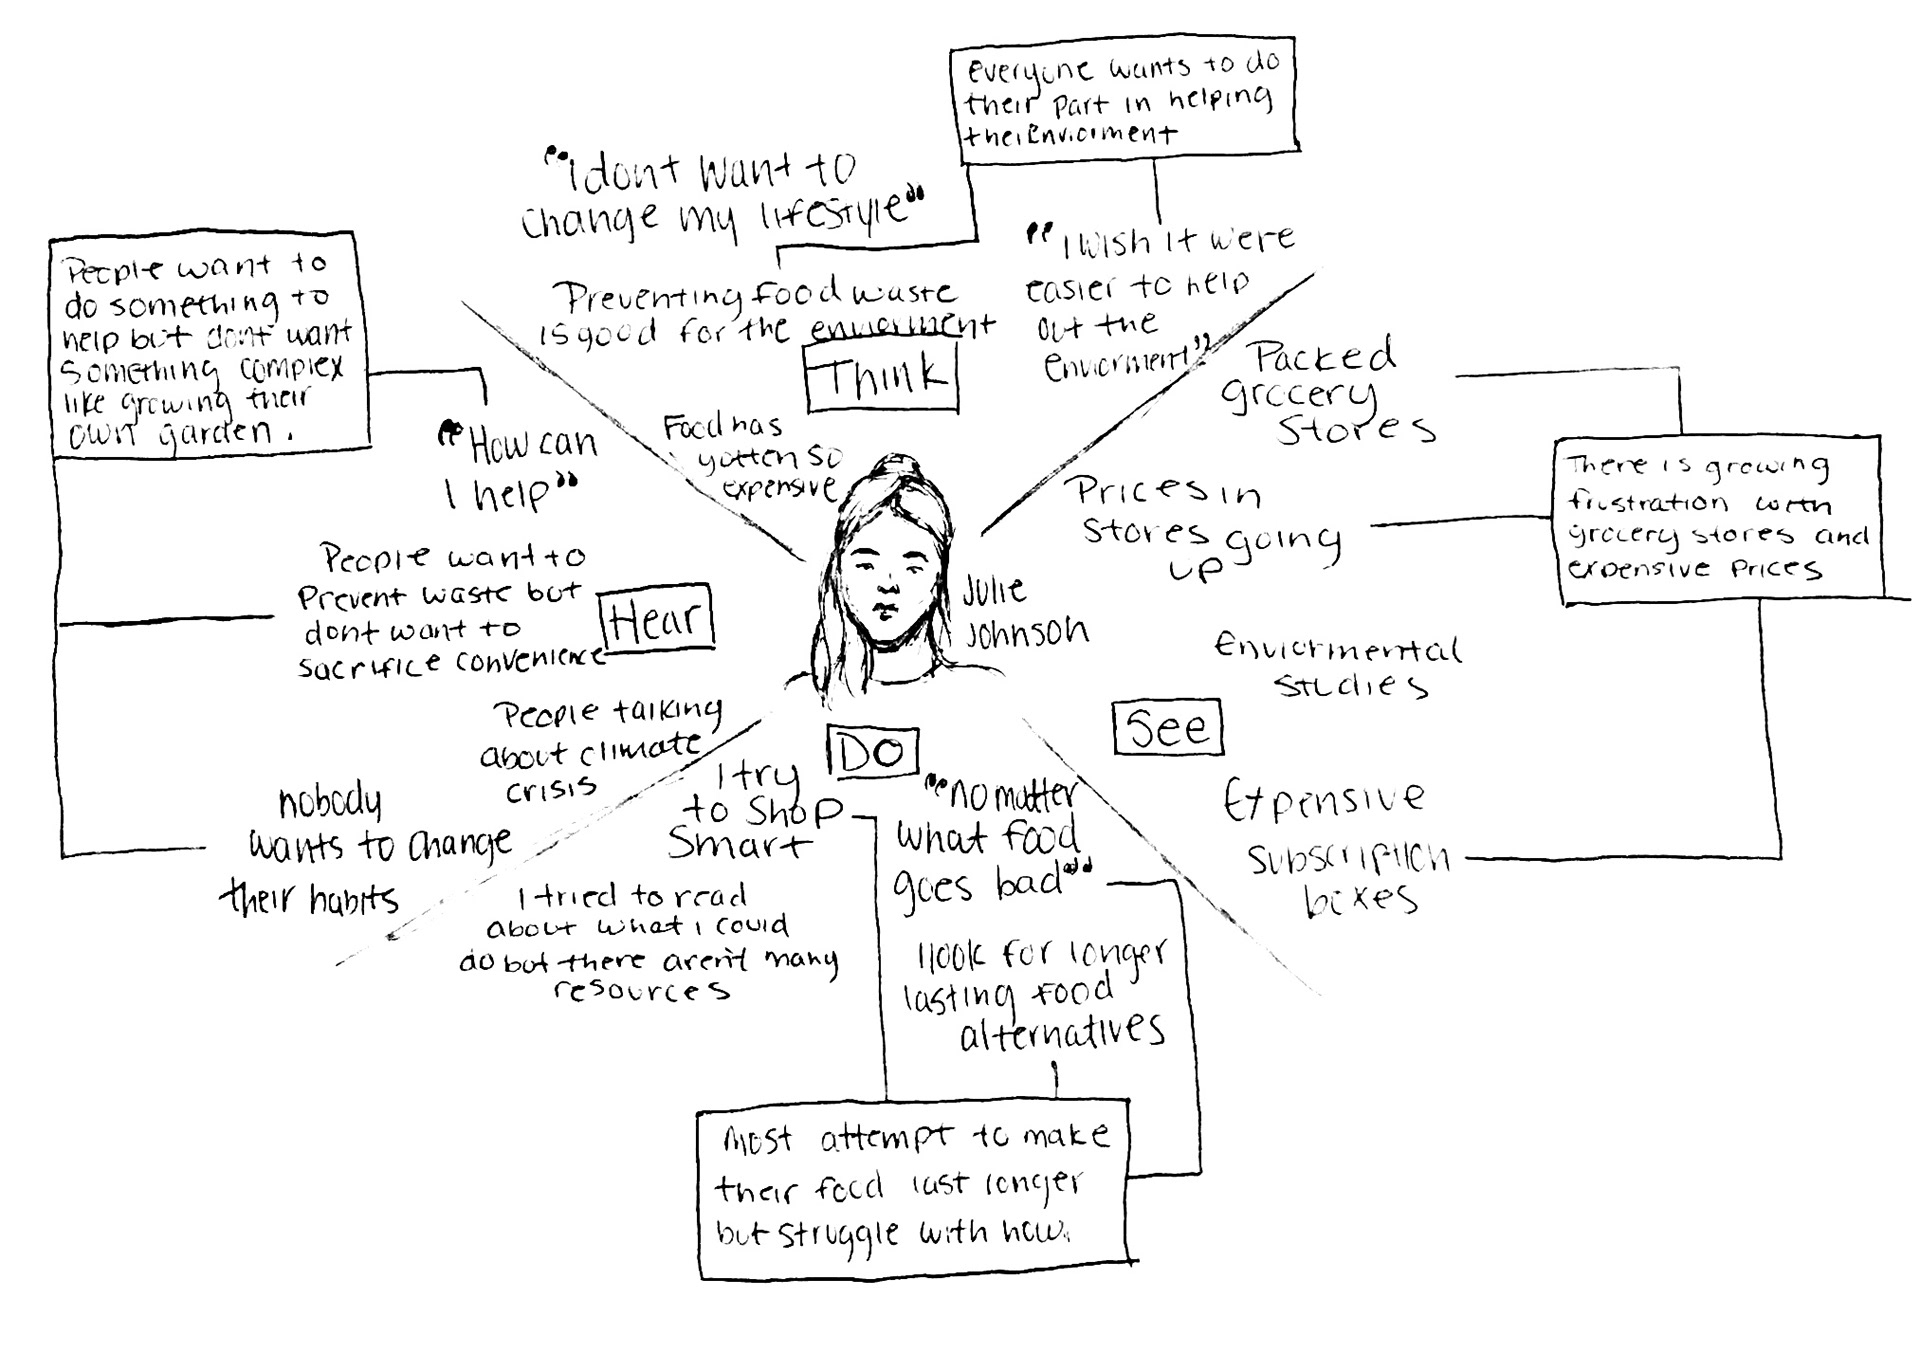 everyone wants to do
their part in helping
their Enviorment
"I dont want to
change my lifestyle"
"I wish it were
easier to help
out the
enviorment"
Preventing food waste
is good for the enviorment
Think
Food has
gotten so
expensive
People want to
do something to
help but dont want
something complex
like growing their
own garden.
"How can
I help"
People want to
prevent waste but
dont want to
sacrifice convenience
Hear
People talking
about climate
crisis
nobody
wants to change
their habits
Julie
Johnson
Packed
grocery
stores
Prices in
stores going
up
There is growing
frustration with
grocery stores and
expensive prices
Enviormental
studies
See
Expensive
subscription
boxes
DO
I try
to shop
smart
"no matter
what food
goes bad"
I tried to read
about what i could
do but there aren't many
resources
I look for longer
lasting food
alternatives
most attempt to make
their food last longer
but struggle with how.